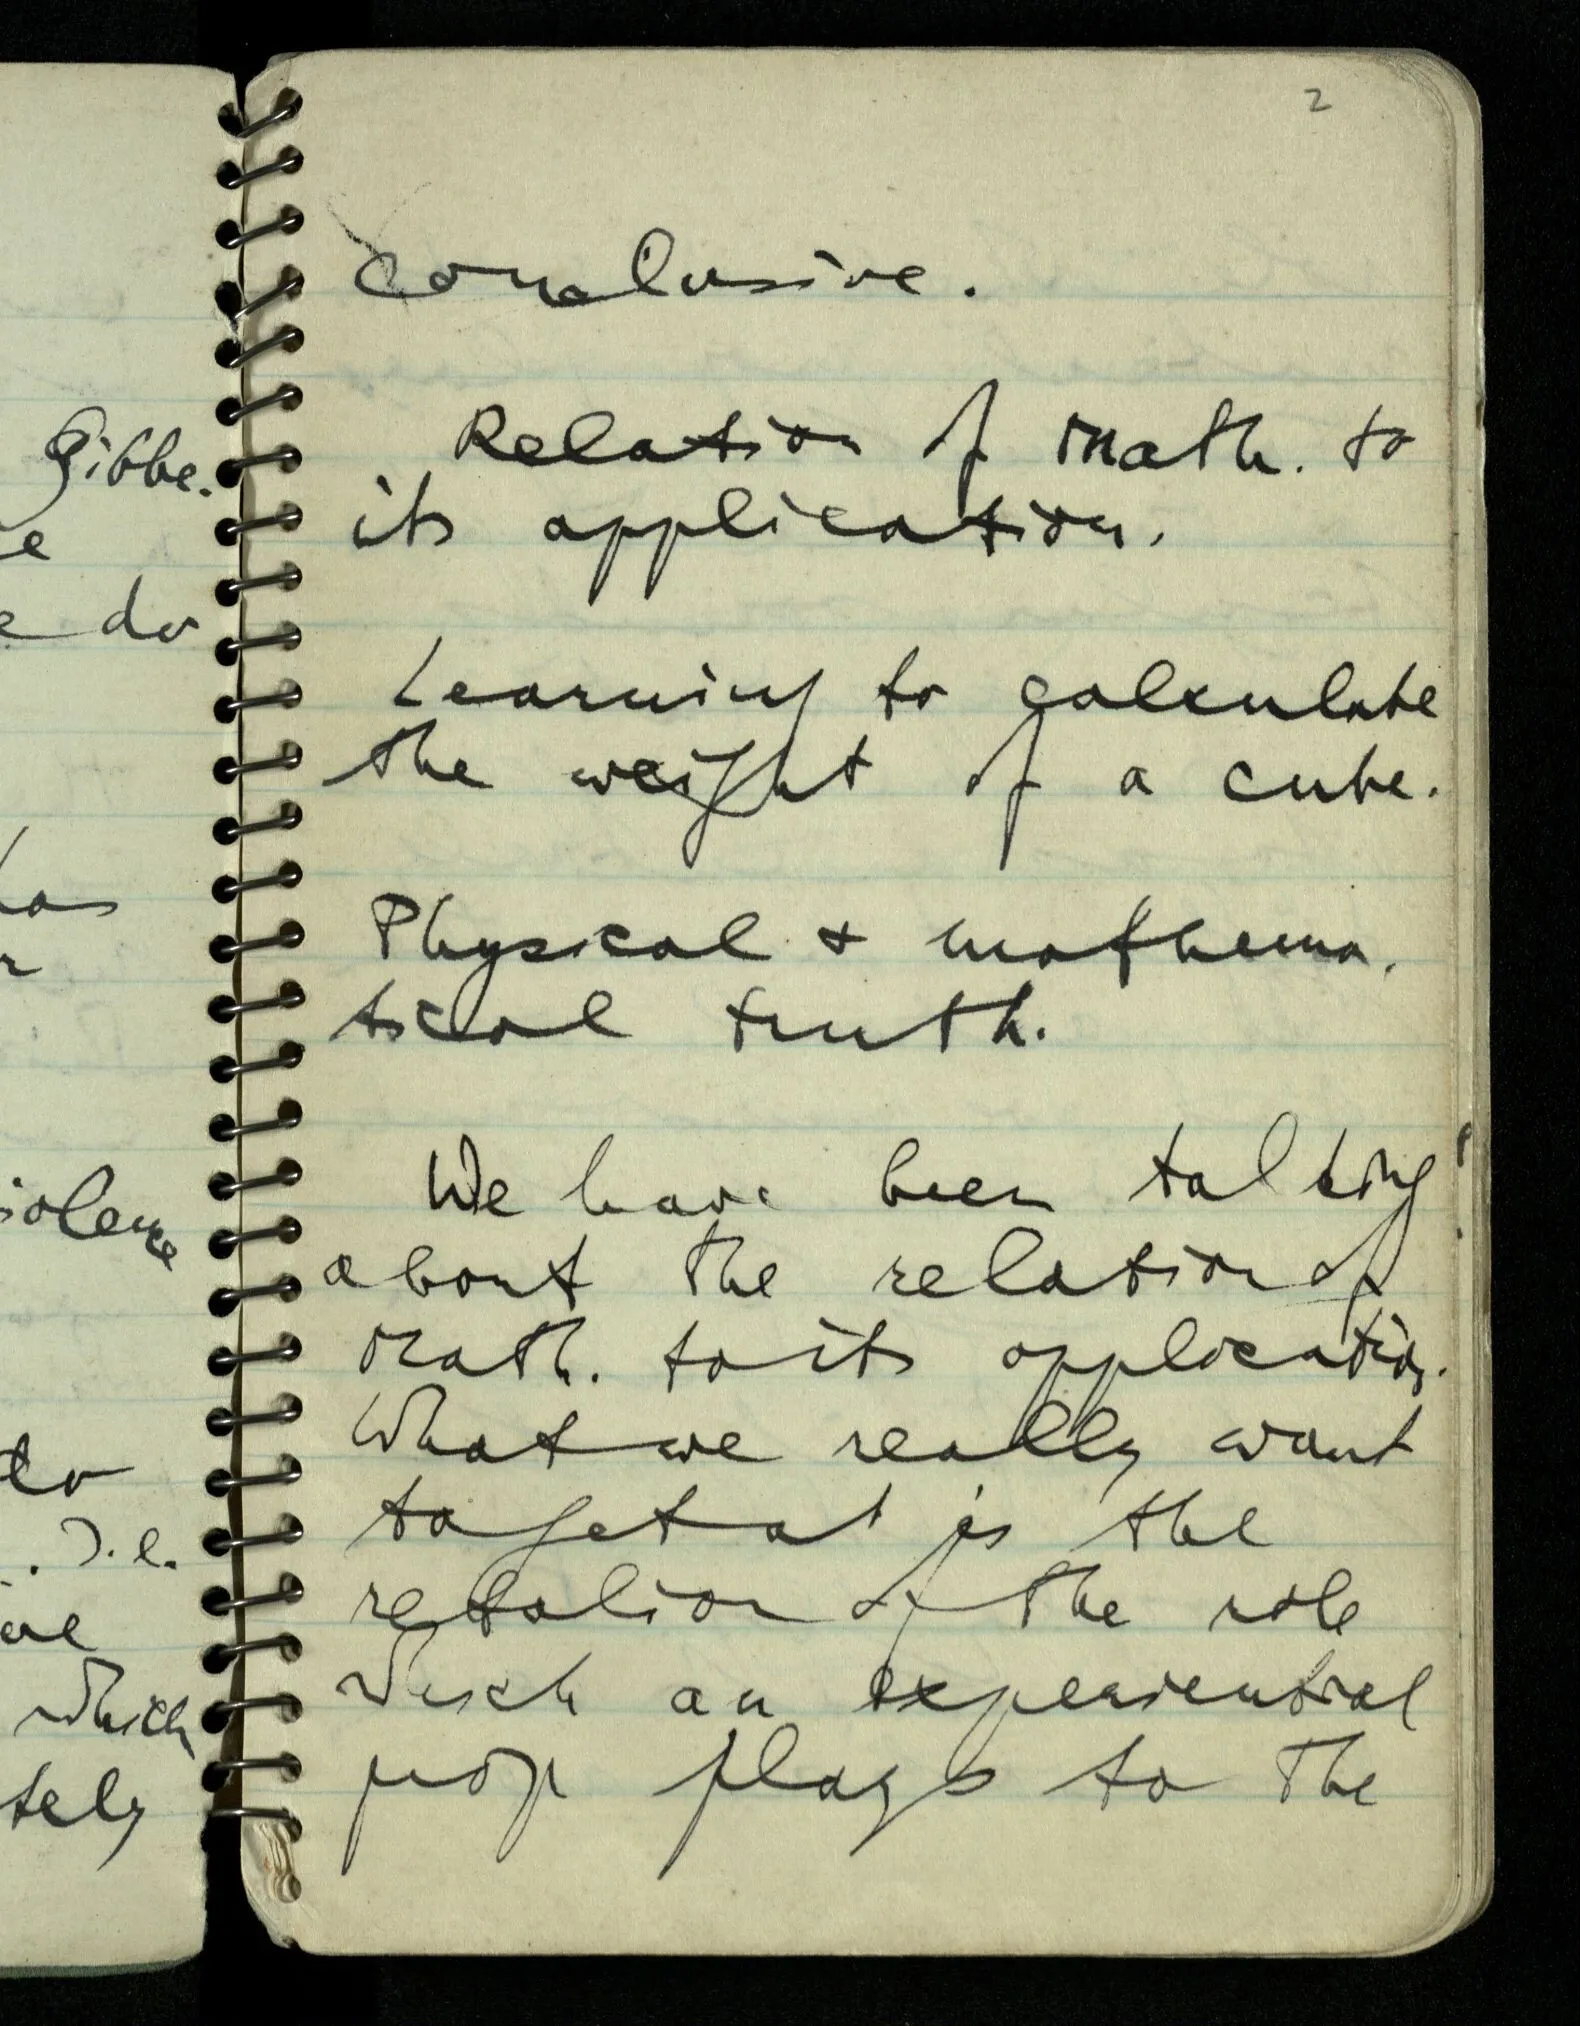 Gibbe.
e
do
has
to
. I.e.
which
tely
2
conclusive.
Relation of Math. to
its application.
Learning to calculate
the weight of a cube.
Physical & mathema-
tical truth.
We have been talking
about the relation of
math. to its application.
What we really want
to get at is the
relation of the role
which an experiential
prop plays to the